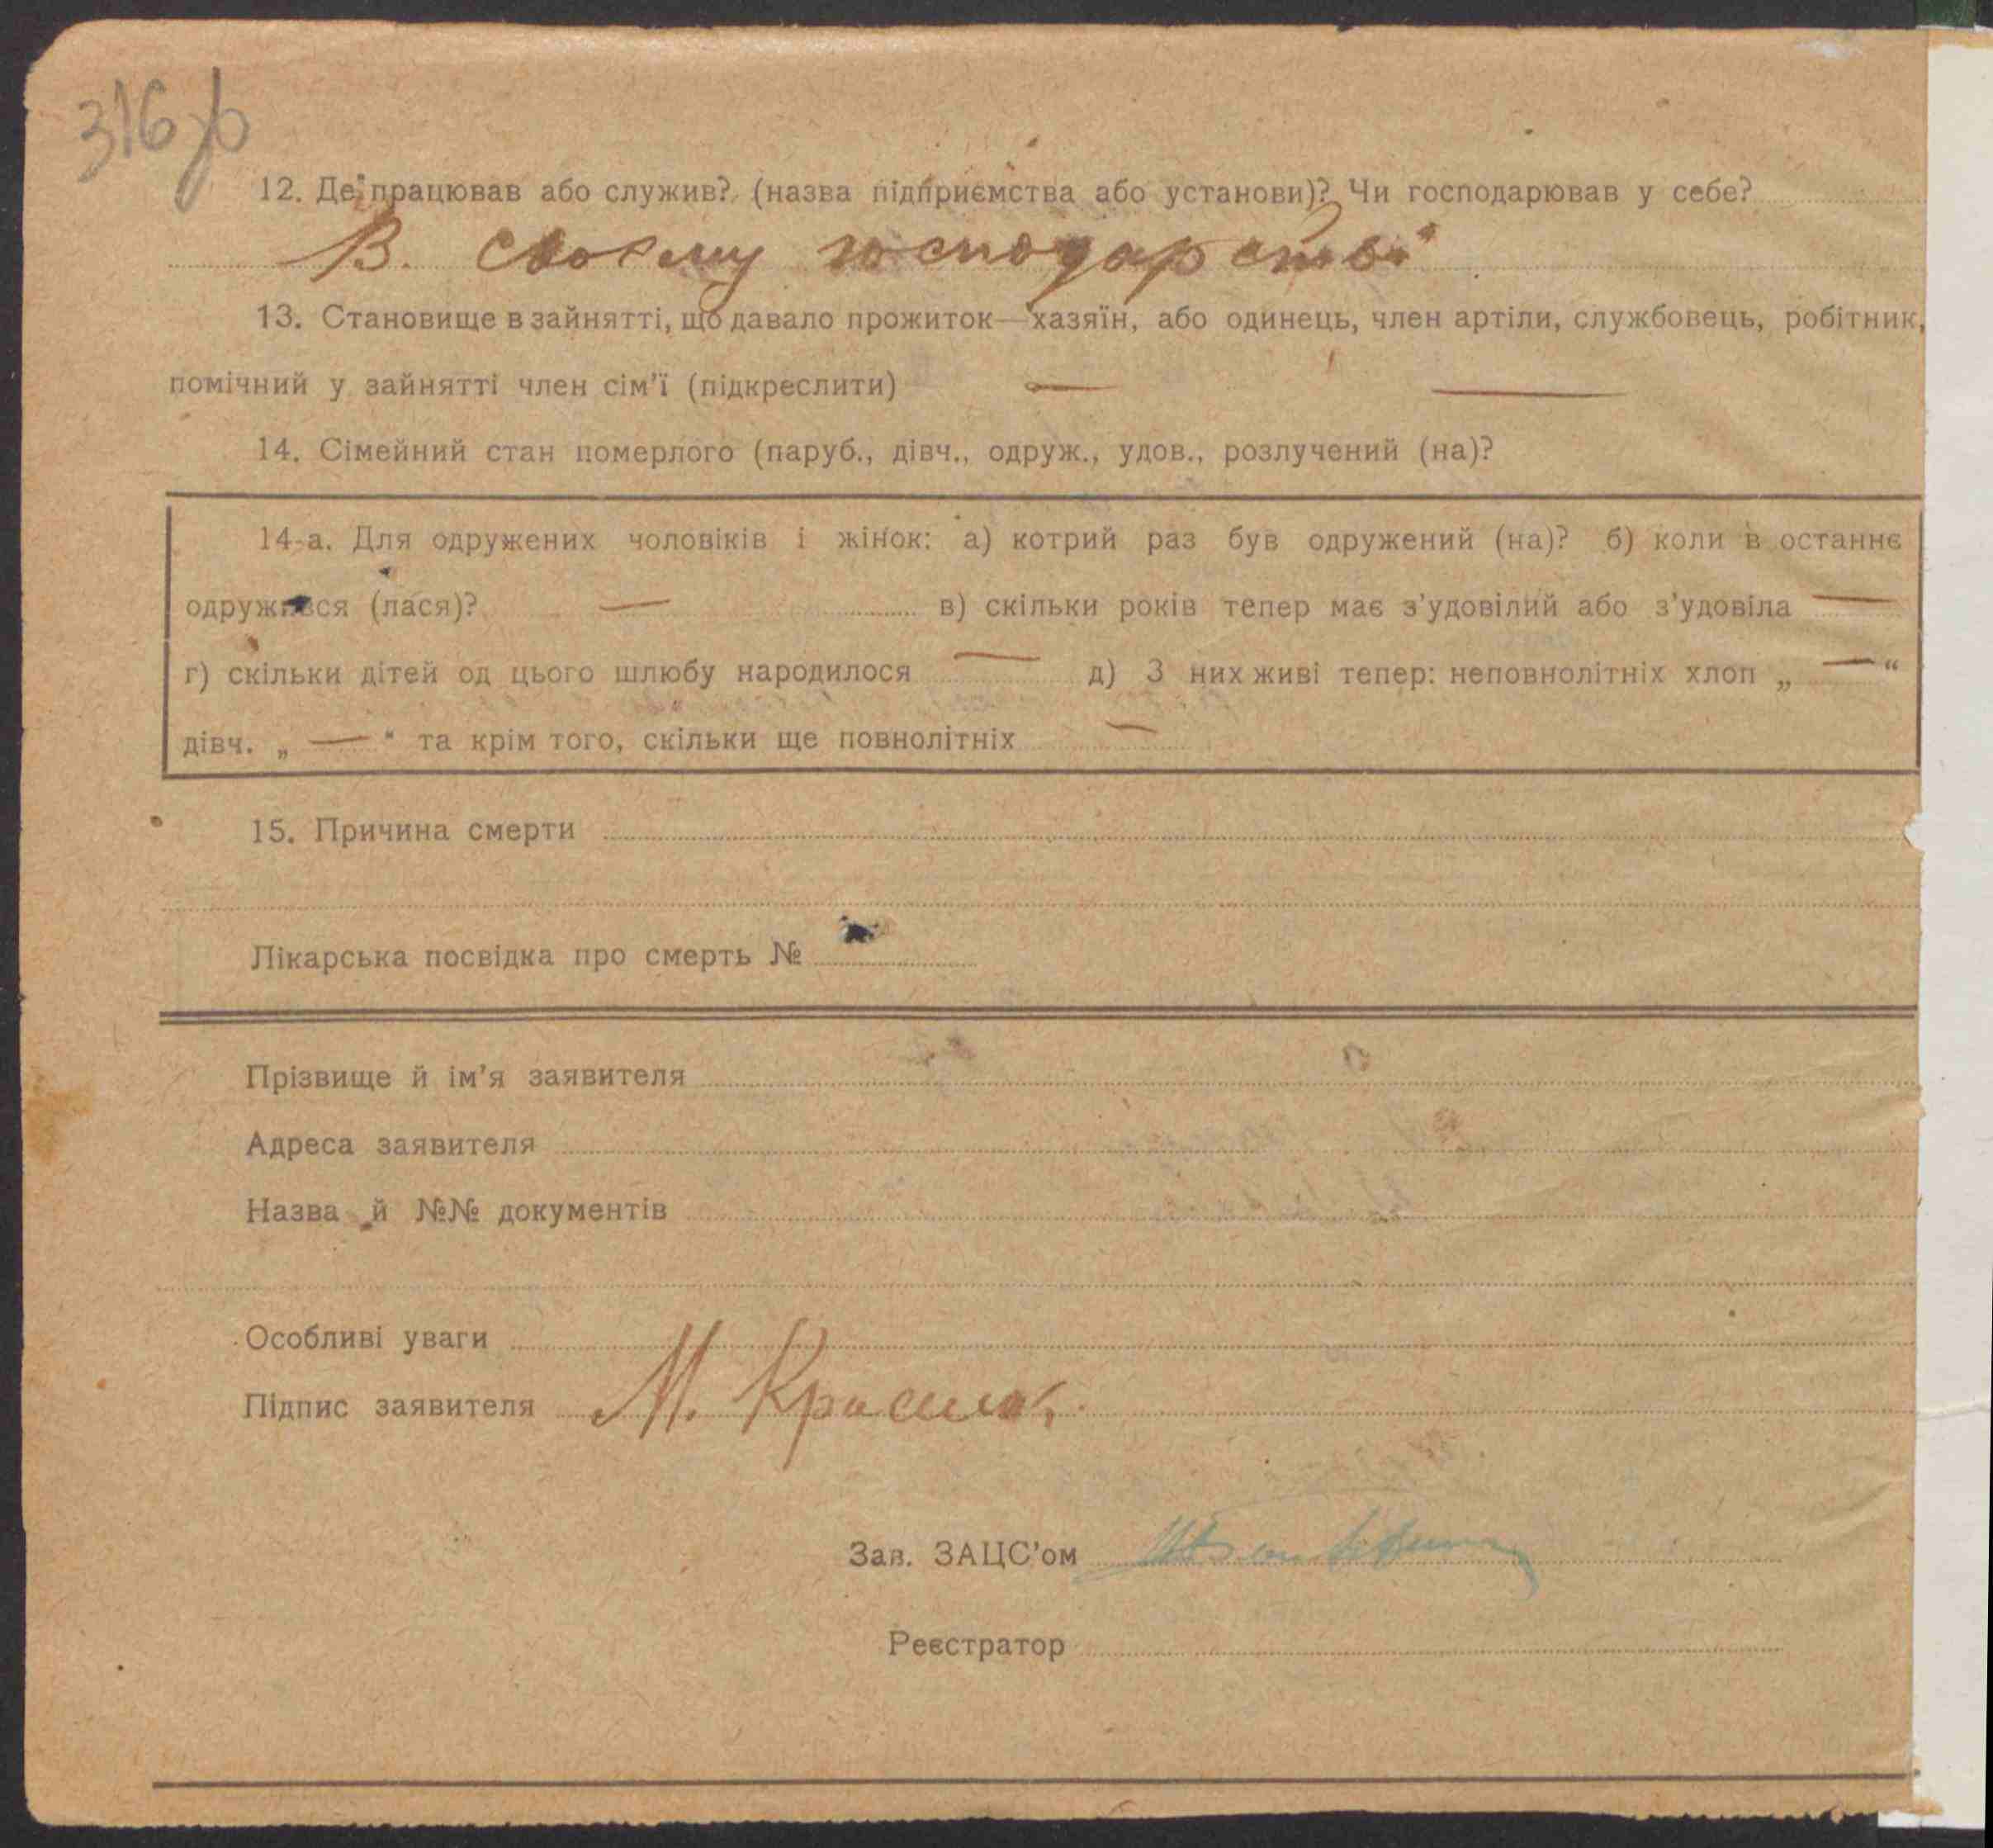 316
12. Де працював або служив? (назва підприємства або установи)? Чи господарював у себе?
В. своєму господарстві
13. Становище в зайнятті, що давало прожиток—хазяїн, або одинець, член артіли, службовець, робітник,
помічний у зайнятті член сім’ї (підкреслити) — —
14. Сімейний стан померлого (паруб., дівч., одруж., удов., розлучений (на)?
14-а. Для одружених чоловіків і жінок: а) котрий раз був одружений (на)? б) коли в останнє
одружився (лася)? — в) скільки років тепер має з’удовілий або з’удовіла —
г) скільки дітей од цього шлюбу народилося — д) З них живі тепер: неповнолітніх хлоп „—“
дівч. „—“ та крім того, скільки ще повнолітніх —
15. Причина смерти
Лікарська посвідка про смерть №
Прізвище й ім’я заявителя
Адреса заявителя
Назва й №№ документів
Особливі уваги
Підпис заявителя М.
Зав. ЗАЦС’ом
Реєстратор